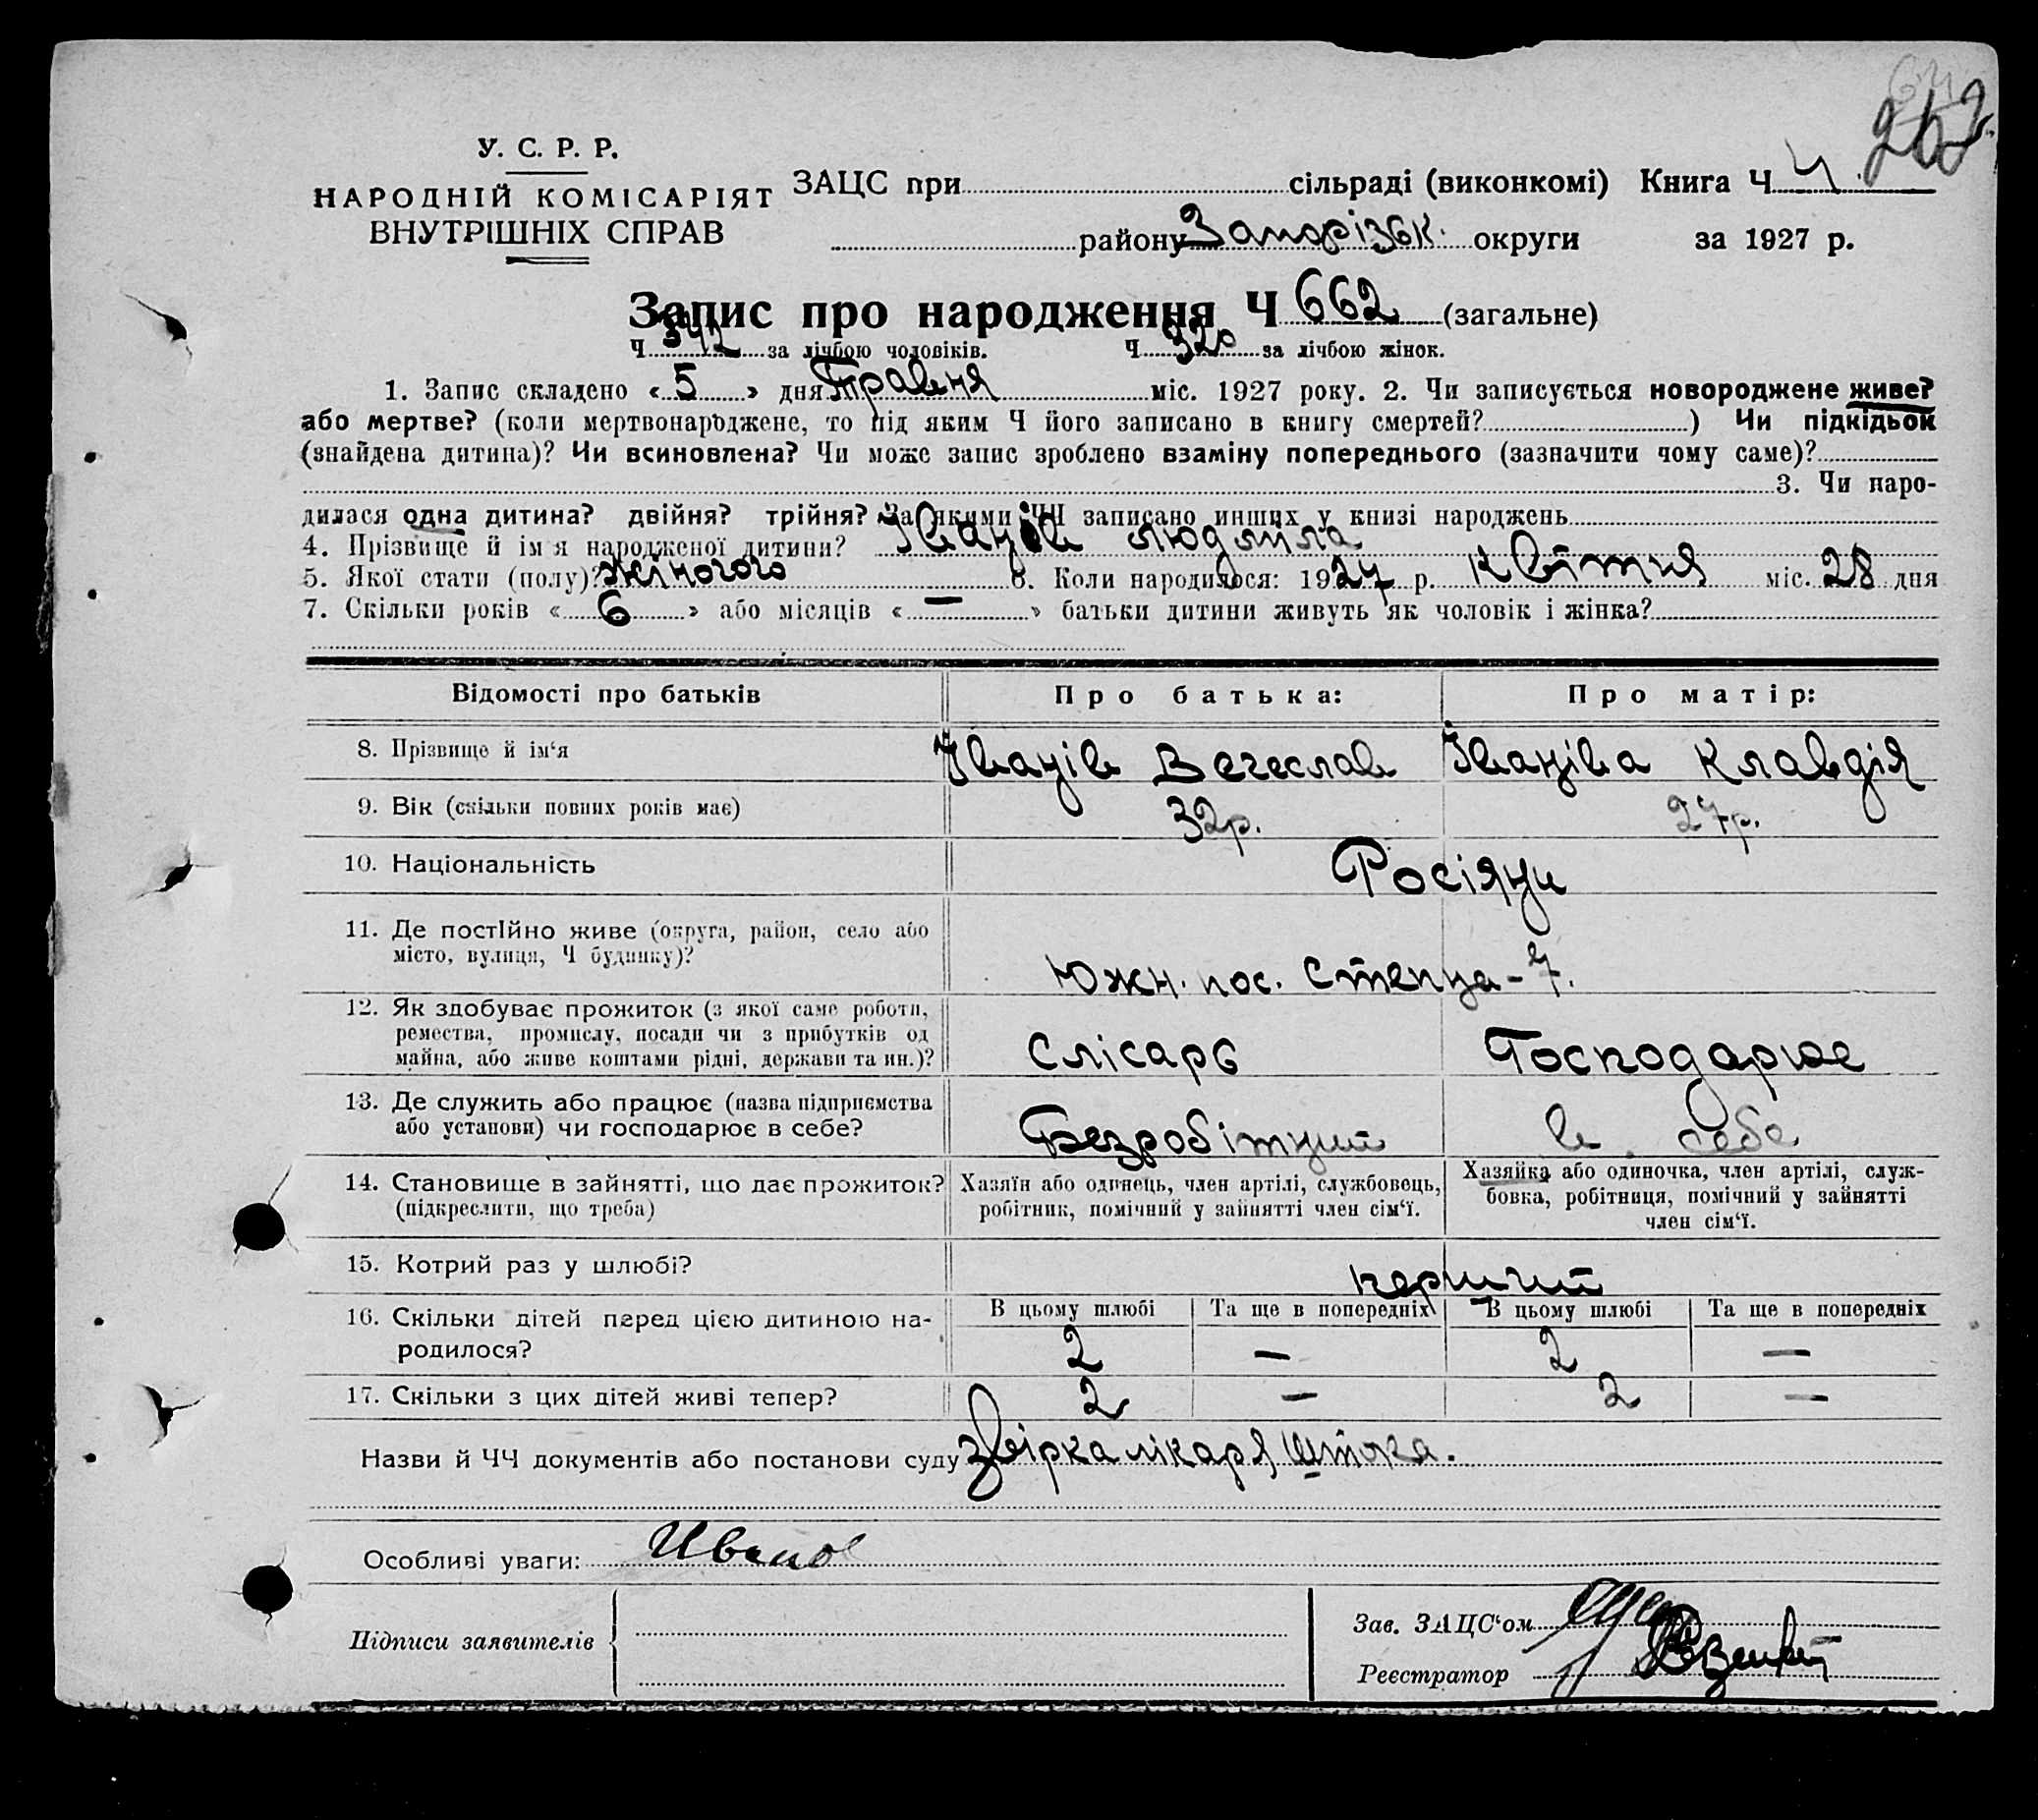 262
У. С. Р. Р.
НАРОДНІЙ КОМІСАРІЯТ
ВНУТРІШНІХ СПРАВ
ЗАЦС при сільраді (виконкомі) Книга Ч 4
району Запорізьк. округи за 1927 р.
Запис про народження Ч 662 (загальне)
Ч 342 за лічбою чоловіків. Ч 320 за лічбою жінок.
1. Запис складено « 5 » дня Травня міс. 1927 року. 2. Чи записується новороджене живе?
або мертве? (коли мертвонароджене, то під яким Ч його записано в книгу смертей? ) Чи підкідьок
(знайдена дитина)? Чи всиновлена? Чи може запис зроблено взаміну попереднього (зазначити чому саме)?
3. Чи наро-
дилася одна дитина? двійня? трійня? За якими ЧЧ записано инших у книзі народжень
4. Прізвище й ім'я народженої дитини? Іванів Людміла
5. Якої стати (полу)? жіночого 6. Коли народилося: 1927 р. Квітня міс. 28 дня
7. Скільки років « 6 » або місяців « — » батьки дитини живуть як чоловік і жінка?
Відомості про батьків Про батька: Про матір:
8. Прізвище й ім'я Іванів Вечеслав Іваніва Клавдія
9. Вік (скільки повних років має) 32р. 27р.
10. Національність Росіяни
11. Де постійно живе (округа, район, село або
місто, вулиця, Ч будинку)? Южн. пос. Степна-7.
12. Як здобуває прожиток (з якої саме роботи,
ремества, промислу, посади чи з прибутків од
майна, або живе коштами рідні, держави та ин.)? Слісарь Господарює
13. Де служить або працює (назва підприємства
або установи) чи господарює в себе? Безробітний в себе
14. Становище в зайнятті, що дає прожиток?
(підкреслити, що треба)
Хазяїн або одинець, член артілі, службовець,
робітник, помічний у зайнятті член сім'ї.
Хазяйка або одиночка, член артілі, служ-
бовка, робітниця, помічний у зайнятті
член сім'ї.
15. Котрий раз у шлюбі? перший
В цьому шлюбі Та ще в попередніх В цьому шлюбі Та ще в попередніх
16. Скільки дітей перед цією дитиною на-
родилося? 2 — 2 —
17. Скільки з цих дітей живі тепер? 2 — 2 —
Назви й ЧЧ документів або постанови суду звірка лікаря Штока.
Особливі уваги: Иванов
Підписи заявителів
Зав. ЗАЦС'ом
Реєстратор